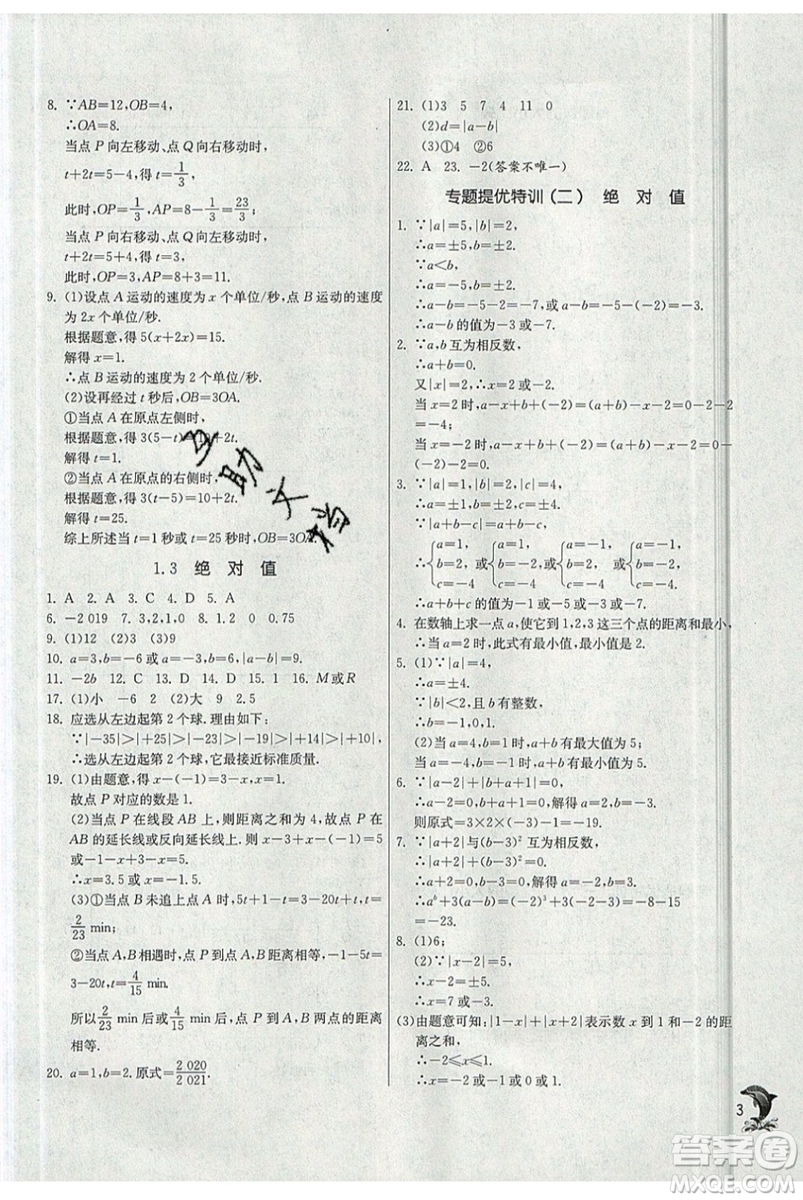 8. ∵AB=12,OB=4,
∴OA=8.
当点 P 向左移动、点 Q 向右移动时,
t+2t=5-4,得 t=1/3,
此时,OP=1/3,AP=8-1/3=23/3;
当点 P 向右移动、点 Q 向左移动时,
t+2t=5+4,得 t=3,
此时,OP=3,AP=8+3=11.
9. (1)设点 A 运动的速度为 x 个单位/秒,点 B 运动的速度
为 2x 个单位/秒.
根据题意,得 5(x+2x)=15.
解得 x=1.
∴点 B 运动的速度为 2 个单位/秒.
(2)设再经过 t 秒后,OB=3OA.
①当点 A 在原点左侧时,
根据题意,得 3(5-t)=10+2t.
解得 t=1.
②当点 A 在原点的右侧时,
根据题意,得 3(t-5)=10+2t.
解得 t=25.
综上所述当 t=1 秒或 t=25 秒时,OB=3OA.
1.3 绝对值
1. A 2. A 3. C 4. D 5. A
6. -2 019 7. 3,2,1,0 8. 1.2 0 0.75
9. (1)12 (2)3 (3)9
10. a=3,b=-6 或 a=-3,b=-6 或|a-b|=9.
11. -2b 12. D 13. C 14. D 15. 1 16. M或R
17. (1)小 -6 2 (2)大 9 2.5
18. 应选从左边起第 2 个球. 理由如下:
∵|-35|>|+25|>|-23|>|-20|>|+13|>|+10|,
∴选从左边起第 2 个球,它最接近标准质量.
19. (1)由题意,得 x-(-1)=3-x,解得 x=1.
故点 P 对应的数是 1.
(2)当点 P 在线段 AB 上,则距离之和为 4,故点 P 在
AB 的延长线或反向延长线上. 则 x-3+x-(-1)=5
或-1-x+3-x=5.
∴x=3.5 或 x=-1.5.
(3)①当点 B 未追上点 A 时,5t+1-t=3-20t+t,t=
2/23 min;
②当点 A,B 相遇时,点 P 到点 A,B 距离相等,-1-5t
=3-20t,t=4/15 min.
所以 2/23 min 或 4/15 min 点 P 到 A,B 两点的距离
相等.
20. a=1,b=2. 原式=2 020/2 021.
21. (1)3 5 7 4 11 0
(2)d=|a-b|
(3)①4 ②6
22. A 23. -2(答案不唯一)
专题提优特训(二) 绝对值
1. ∵|a|=5,|b|=2,
∴a=±5,b=±2.
∵a<b,
∴a=-5,b=±2.
∴a-b=-5-2=-7或a-b=-5-(-2)=-3.
∴a-b 的值为-3 或-7.
2. ∵a,b 互为相反数,
∴a+b=0.
又|x|=2,∴x=±2.
当 x=2 时,a-x+b+(-2)=(a+b)-x-2=0-2-2
=-4;
当 x=-2 时,a-x+b+(-2)=(a+b)-x-2=0+2
-2=0.
3. ∵|a|=1,|b|=2,|c|=4,
∴a=±1,b=±2,c=±4.
∵|a+b-c|=a+b-c,
∴{a=1,b=2,c=-4 或{a=1,b=-2,c=-4 或{a=-1,b=2,c=-4 或{a=-1,b=-2,c=-4.
4. 在数轴上求一点 a,使它到 1,2,3 这三个点的距离和最小,
∴当 a=2 时,此式有最小值,最小值是 2.
5. (1)∵|a|=4,
∴a=±4.
∵|b|<2,且 b 有整数,
∴b=-1,0,1.
(2)当 a=4,b=-1 时,a-b 有最大值为 5;
当 a=-4,b=1 时,a-b 有最小值为-5.
6. ∵|a-2|+|b-3|+|c-4|=0,
∴a-2=0,b-3=0,c-4=0,解得 a=2,b=3,c=4.
则原式=3×2×(-3)+(-1)=-19.
7. ∵|a+2|与(b-3)² 互为相反数,
∴|a+2|+(b-3)²=0.
∴a+2=0,b-3=0,解得 a=-2,b=3.
∴aᵇ+3(a-b)=(-2)³+3(-2-3)=-8-15=
-23.
8. (1)6;
(2)∵|x-2|=5,
∴x-2=±5,
∴x=7 或 x=-3.
(3)由题意可知:|1-x|+|x+2|表示数 x 到 1 和-2 的距
离之和,
∴-2≤x≤1.
∴x=-2 或-1 或 0 或 1.
3
答案圈
MXQE.COM